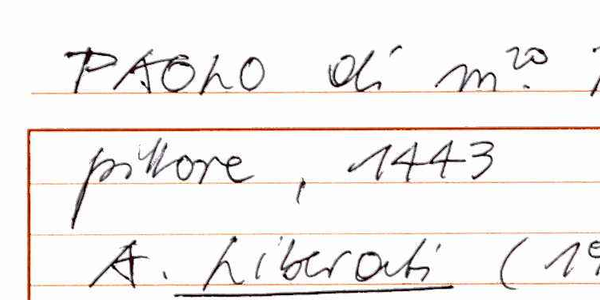 PAOLO di m.ro
pittore, 1443
A. Liberati (19